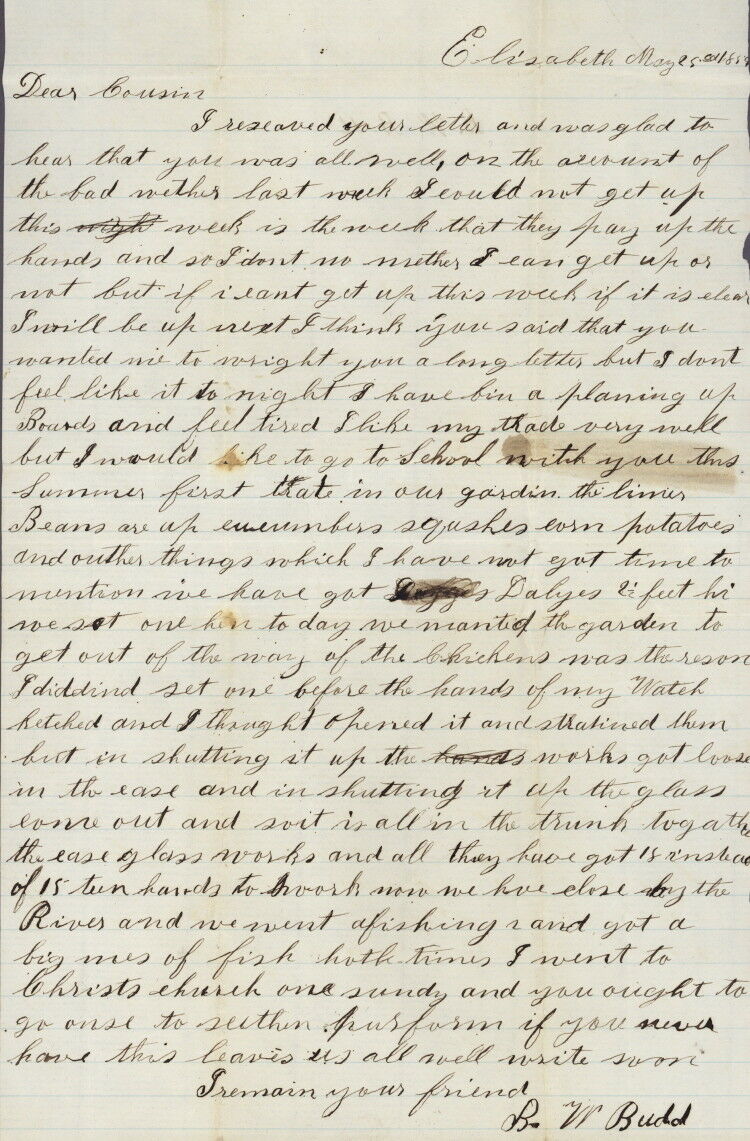 Elisabeth May 25
Dear Cousin
I reseaved your letter and was glad to
hear that you was all well, on the account of
the bad wether last week I could not get up
this week is the week that they pay up the
hands and so I dont no wether I can get up or
not but if i cant get up this week if it is clear
I will be up next I think you said that you
wanted me to wright you a long letter but I dont
feel like it to night I have bin a planing up
Boards and feel tired I like my trade very well
but I would like to go to School with you this
Summer first trate in our gardin the limer
Beans are up cucumbers squshes corn potatoes
and outher things which I have not got time to
mention we have got Dalyes 2½ feet hi
we set one hen to day we wanted the garden to
get out of the way of the Chickens was the reson
I diddind set one before the hands of my Watch
ketched and I thought opened it and stratined them
but in shutting it up the works got loose
in the case and in shutting it up the glass
come out and so it is all in the trunk togathe
the case glass works and all they have got 18 instead
of 15 teen hands to work now we live close by the
River and we went afishing and got a
big mes of fish both times I went to
Christs church one sundy and you ought to
go onse to see then purform if you never
have this leaves us all well write soon
I remain your friend
B. W Budd